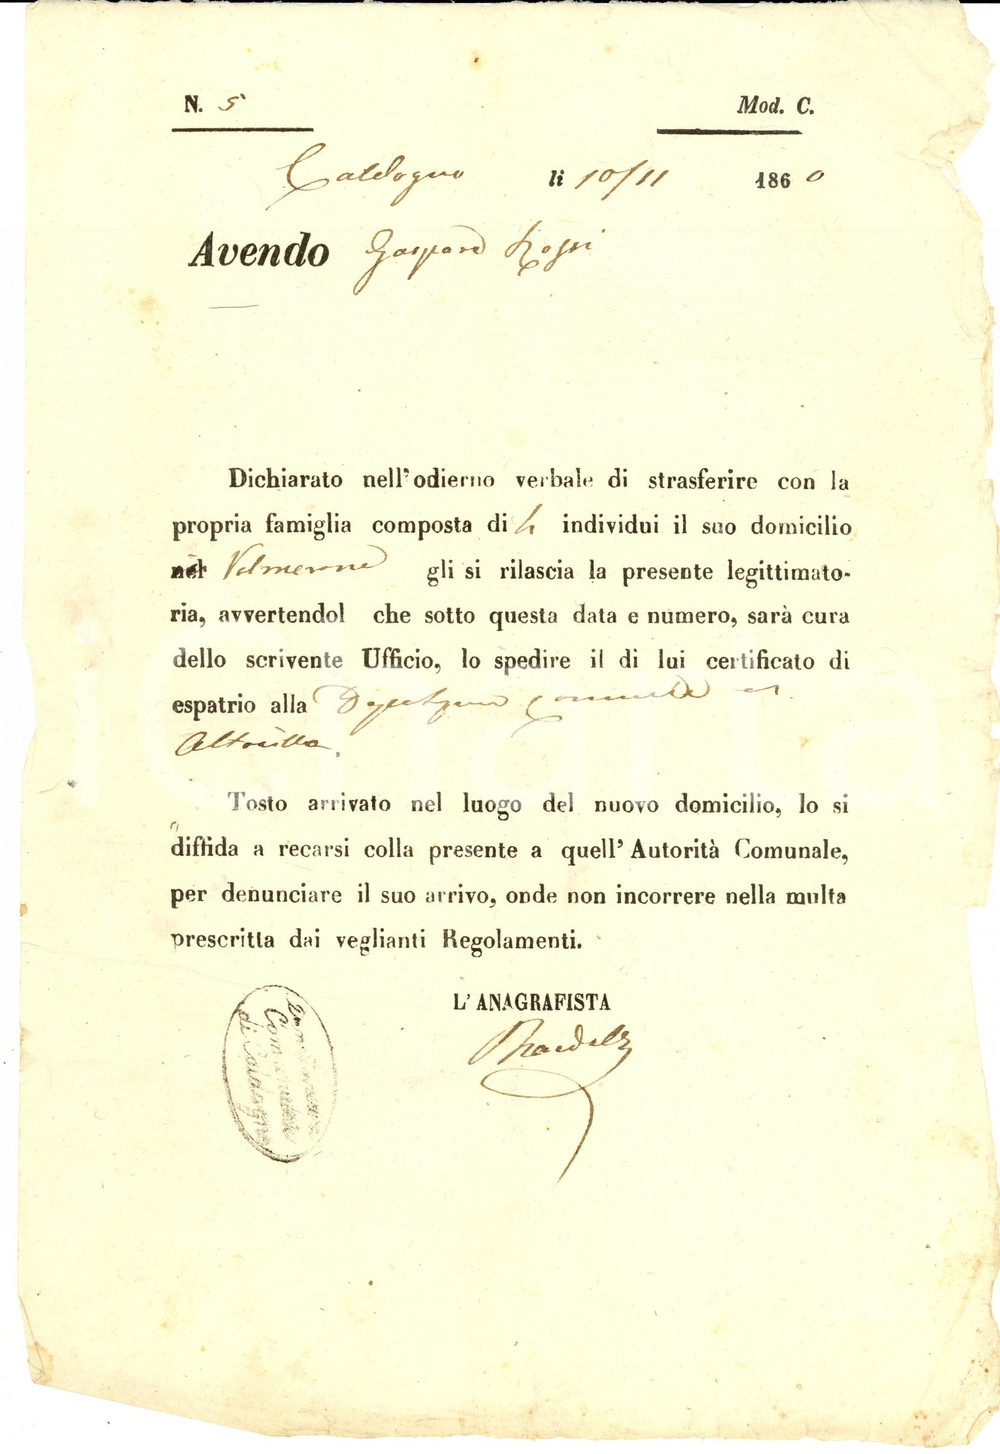 N. 5
Mod. C.
Caldogno li 10/11 1860
Avendo Gaspare Rossi
Dichiarato nell'odierno verbale di strasferire con la
propria famiglia composta di 4 individui il suo domicilio
nel gli si rilascia la presente legittimato-
ria, avvertendol che sotto questa data e numero, sarà cura
dello scrivente Ufficio, lo spedire il di lui certificato di
espatrio alla Deputazione Comunale di
Altavilla.
Tosto arrivato nel luogo del nuovo domicilio, lo si
diffida a recarsi colla presente a quell' Autorità Comunale,
per denunciare il suo arrivo, onde non incorrere nella multa
prescritta dai veglianti Regolamenti.
L' ANAGRAFISTA
Comunale
di Caldogno